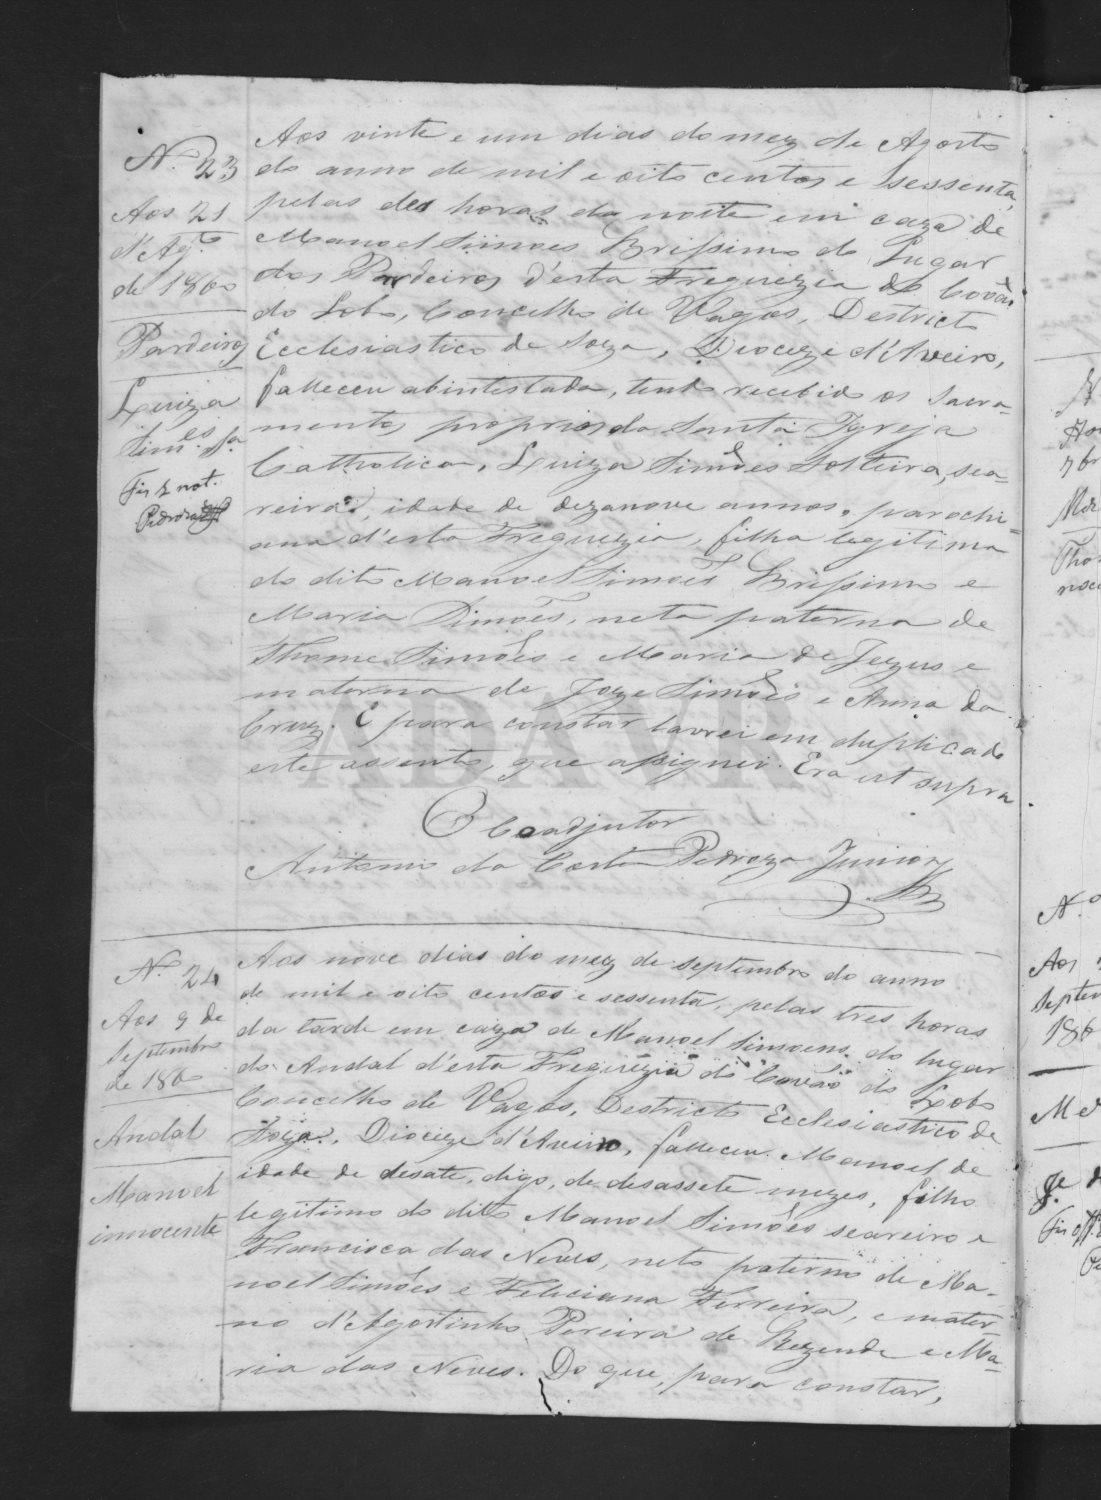 N.º 23
Aos 21
d'Ag.to
de 1860
Pardeiros
Luiza
Sim.es S.a
Fiz not.
Pedroza
Aos vinte e um dias do mez de Agosto
do anno de mil e oito centos e sessenta,
pelas dez horas da noite em caza de
Manoel Simoes Brissimo do Lugar
dos Pardeiros d'esta Freguezia do Covão
do Lobo, Concelho de Vagos, Destricto
Ecclesiastico de Soza, Dioceze d'Aveiro,
falleceu abintestada, tendo recebido os Sacra-
mentos proprios da Santa Igreja
Catholica, Luiza Simões Solteira, sea-
reira, idade de dezanove annos, parochi-
ana d'esta Freguezia, filha legitima
do dito Manoel Simoes Brissimo e
Maria Simões, neta paterna de
Thome Simões e Maria de Jezus e
materna de Joze Simões e Anna da
Cruz. E para constar lavrei em duplicado
este assento, que assignei. Era ut supra.
O Coadjutor
Antonio da Costa Pedroza Junior
N.º 24
Aos 9 de
Septembro
de 1860
Andal
Manoel
innocente
Aos nove dias do mez de septembro do anno
de mil e oito centos e sessenta, pelas tres horas
da tarde em caza de Manoel Simoens do lugar
do Andal d'esta Freguezia do Covão do Lobo
Concelho de Vagos, Destricto Ecclesiastico de
Soza, Diocieze d'Aveiro, falleceu Manoel de
idade de desate, digo, de desassete mezes, filho
legitimo do dito Manoel Simões seareiro e
Francisca das Neves, neto paterno de Ma-
noel Simões e Feliciana Ferreira, e mater
no d'Agostinho Pereira de Rezende e Ma-
ria das Neves. Do que, para constar,
ADAVR
N.º
Aos
Septem
186